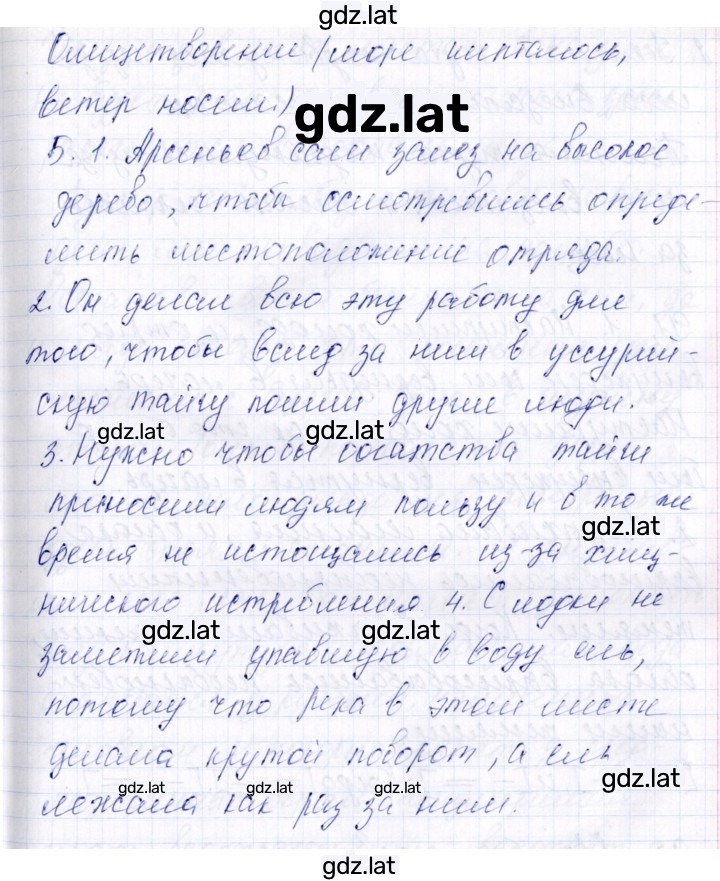 gdz.lat
Олицетворение (море шепталось,
ветер носил.)
gdz.lat
5. 1. Арсеньев сам залез на высокое
дерево, чтобы осмотревшись опреде-
лить местоположение отряда.
2. Он делал всю эту работу для
того, чтобы вслед за ним в уссурий-
скую тайгу пошли другие люди.
gdz.lat gdz.lat
3. Нужно чтобы богатства тайги
приносили людям пользу и в то же
gdz.lat
время не истощались из-за хищ-
нического истребления 4. С лодки не
gdz.lat gdz.lat
заметили упавшую в воду ель,
потому что река в этом месте
делала крутой поворот, а ель
gdz.lat gdz.lat gdz.lat
лежала как раз за ним.
gdz.lat